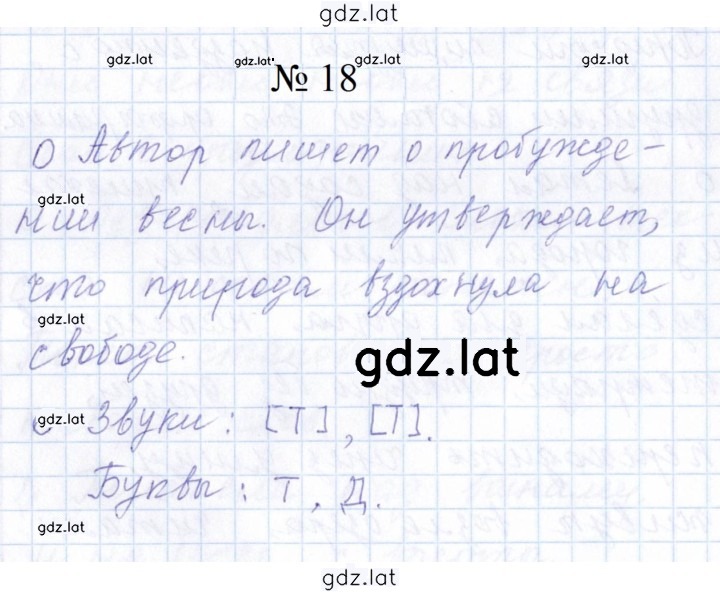 gdz.lat
gdz.lat gdz.lat gdz.lat gdz.lat
№ 18
О Автор пишет о пробужде-
gdz.lat
нии весны. Он утверждает,
что природа вздохнула на
gdz.lat
свободе.
gdz.lat
с gdz.lat Звуки: [Т], [Т].
Буквы: Т, Д.
gdz.lat
gdz.lat